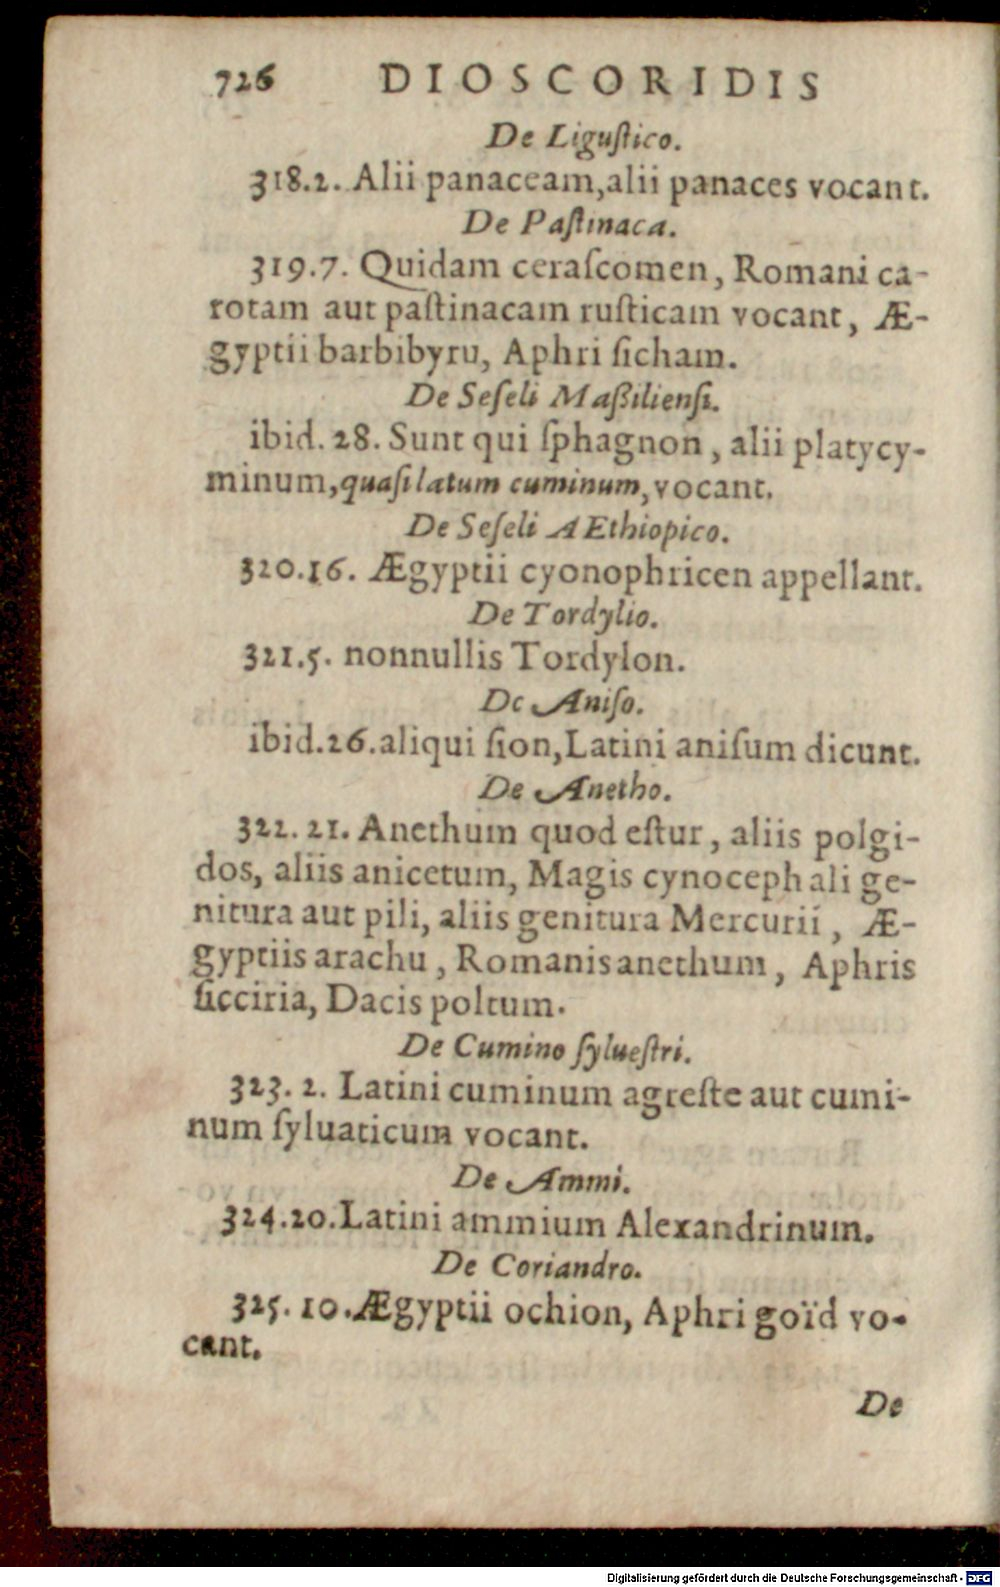 726 DIOSCORIDIS
De Liguſtico.
318.2. Alii panaceam, alii panaces vocant.
De Paſtinaca.
319.7. Quidam ceraſcomen, Romani ca-
rotam aut paſtinacam ruſticam vocant, Æ-
gyptii barbibyru, Aphri ſicham.
De Seſeli Maßilienſi.
ibid. 28. Sunt qui ſphagnon, alii platycy-
minum, quaſi latum cuminum, vocant.
De Seſeli AEthiopico.
320.16. Ægyptii cyonophricen appellant.
De Tordylio.
321.5. nonnullis Tordylon.
De Aniſo.
ibid.26. aliqui ſion, Latini aniſum dicunt.
De Anetho.
322. 21. Anethum quod eſtur, aliis polgi-
dos, aliis anicetum, Magis cynocephali ge-
nitura aut pili, aliis genitura Mercurii, Æ-
gyptiis arachu, Romanis anethum, Aphris
ſicciria, Dacis poltum.
De Cumino ſylueſtri.
323. 2. Latini cuminum agreſte aut cumi-
num ſyluaticum vocant.
De Ammi.
324.20. Latini ammium Alexandrinum.
De Coriandro.
325. 10. Ægyptii ochion, Aphri goïd vo-
cant.
De
Digitalisierung gefördert durch die Deutsche Forschungsgemeinschaft - DFG